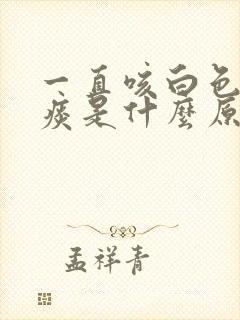 一直咳白色
痰是什麼原
孟祥青